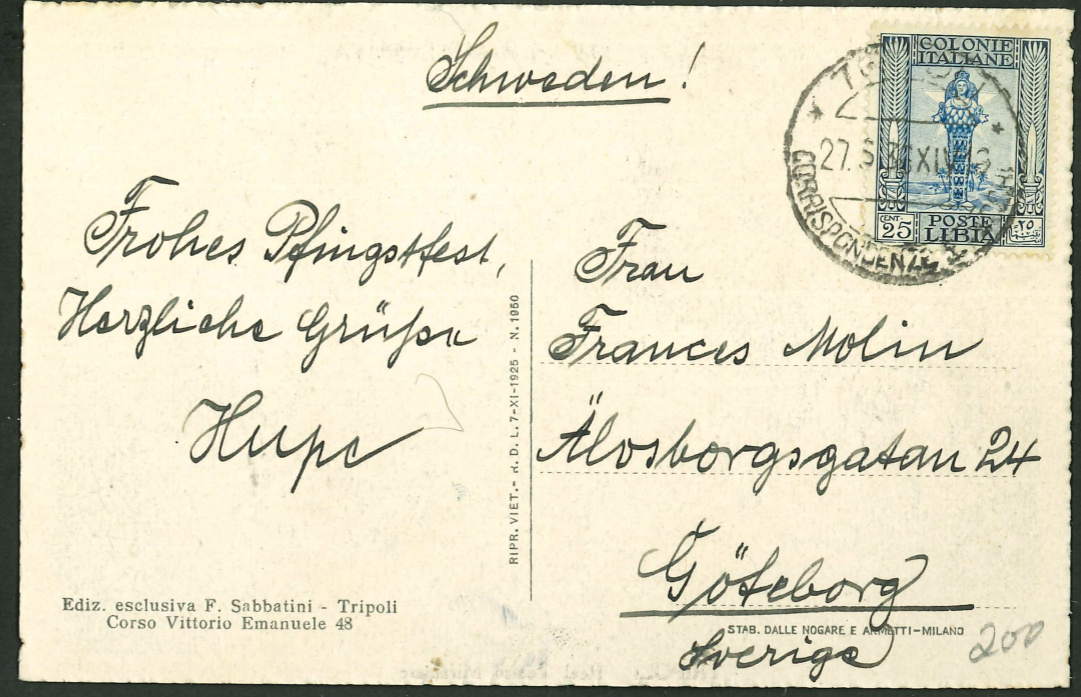 Schweden!
COLONIE
ITALIANE
27. 5. 36 XIV
CORRISPONDENZE
CENT. 25
POSTE
LIBIA
٢٥
Frohes Pfingstfest,
Herzliche Grüße
Hupe
RIPR. VIET. - R. D. L. 7-XI-1925 - N. 1950
Frau
Frances Molin
Älvsborgsgatan 24
Göteborg
Sverige
Ediz. esclusiva F. Sabbatini - Tripoli
Corso Vittorio Emanuele 48
STAB. DALLE NOGARE E ARMETTI-MILANO
200